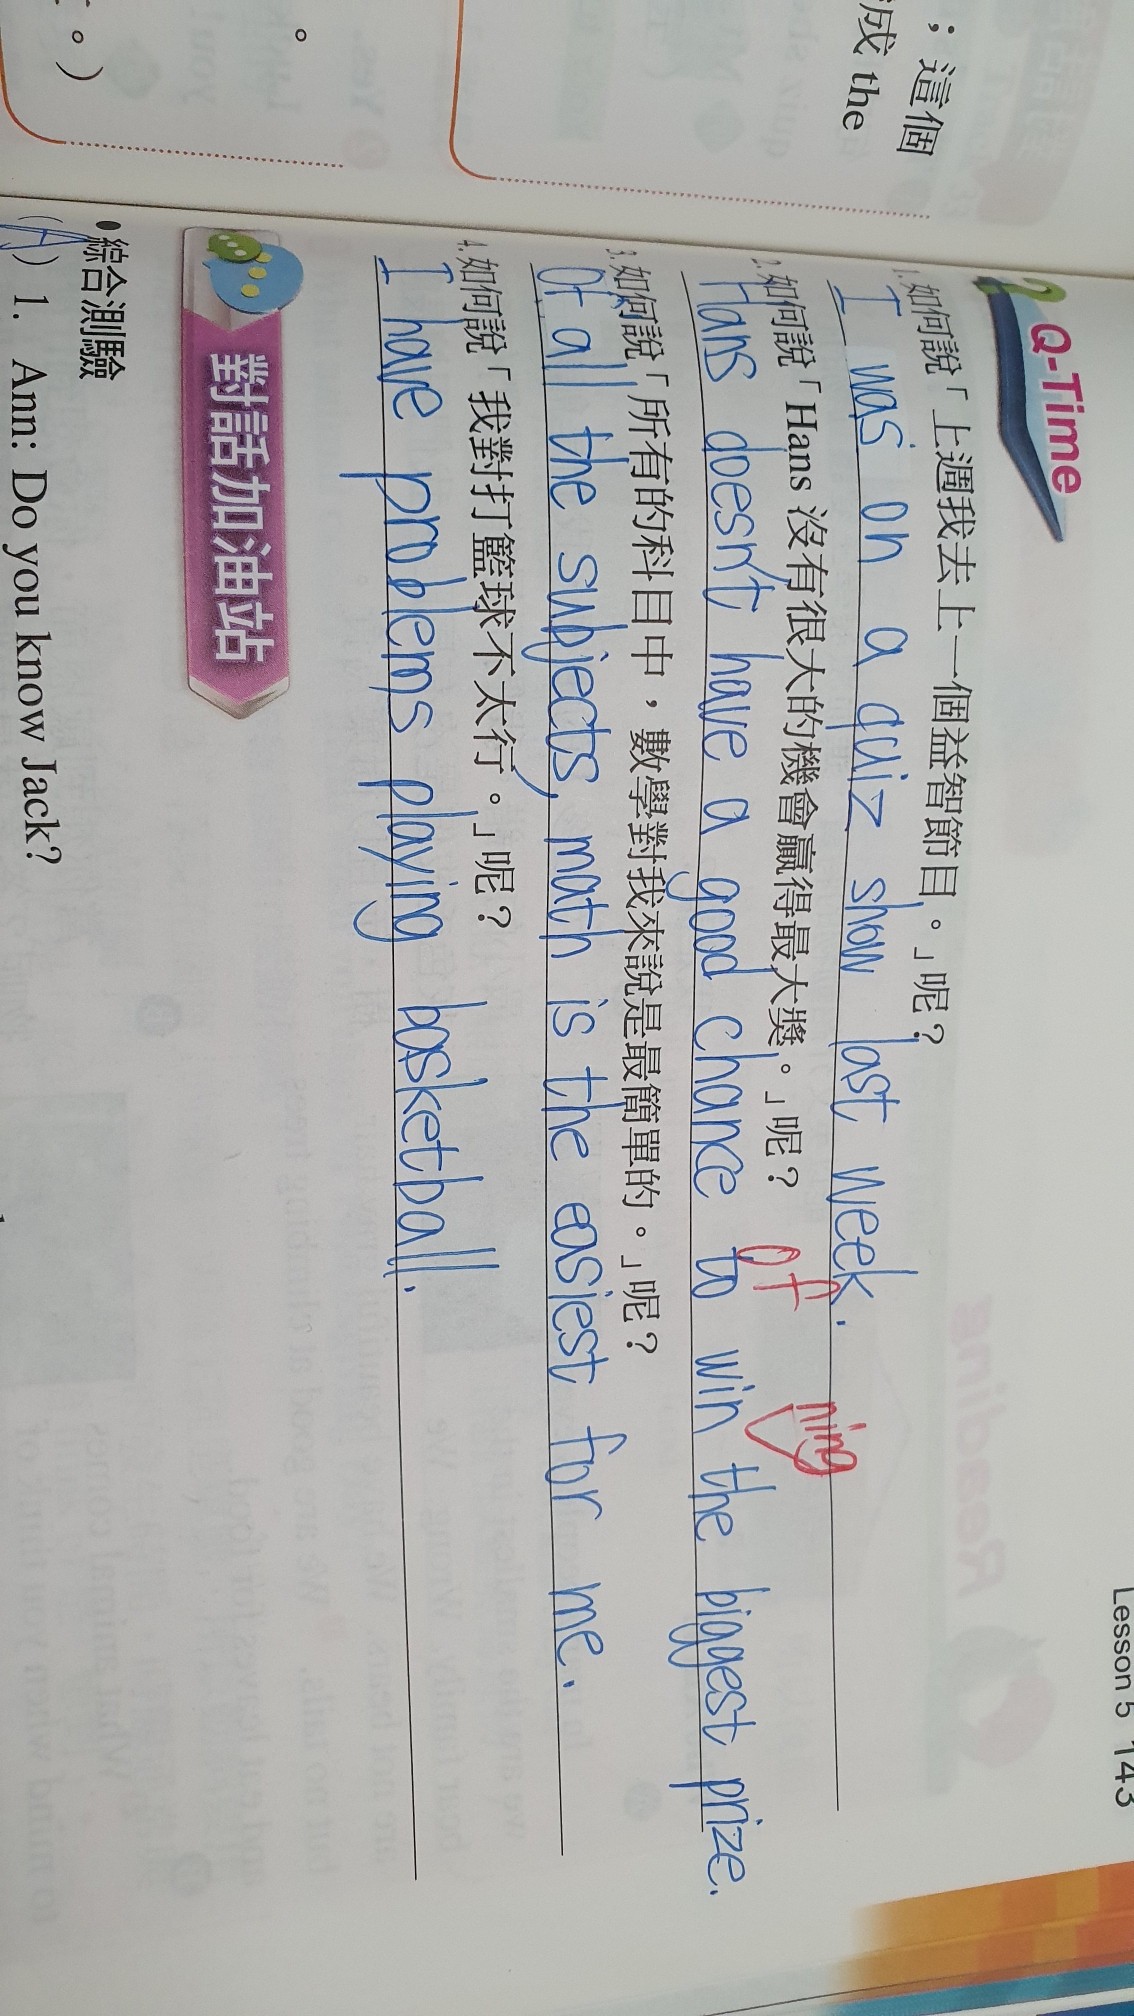 ；這個
成 the
。
。）
Lesson 5 143
Q-Time
1. 如何說「上週我去上一個益智節目。」呢？
I was on a quiz show last week.
2. 如何說「Hans 沒有很大的機會贏得最大獎。」呢？
of ning
Hans doesn't have a good chance to win the biggest prize.
3. 如何說「所有的科目中，數學對我來說是最簡單的。」呢？
Of all the subjects, math is the easiest for me.
4. 如何說「我對打籃球不太行。」呢？
I have problems playing basketball.
對話加油站
•綜合測驗
(A) 1. Ann: Do you know Jack?